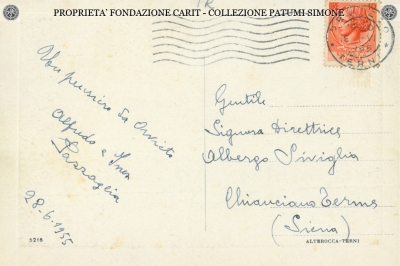 PROPRIETA' FONDAZIONE CARIT - COLLEZIONE PATUMI SIMONE
TERNI
Un pensiero da Orvieto
Alfredo e Ines
28-6-1955
Gentile
Signora Direttrice
Albergo Siviglia
Chianciano Terme
(Siena)
5216
ALTEROCCA-TERNI